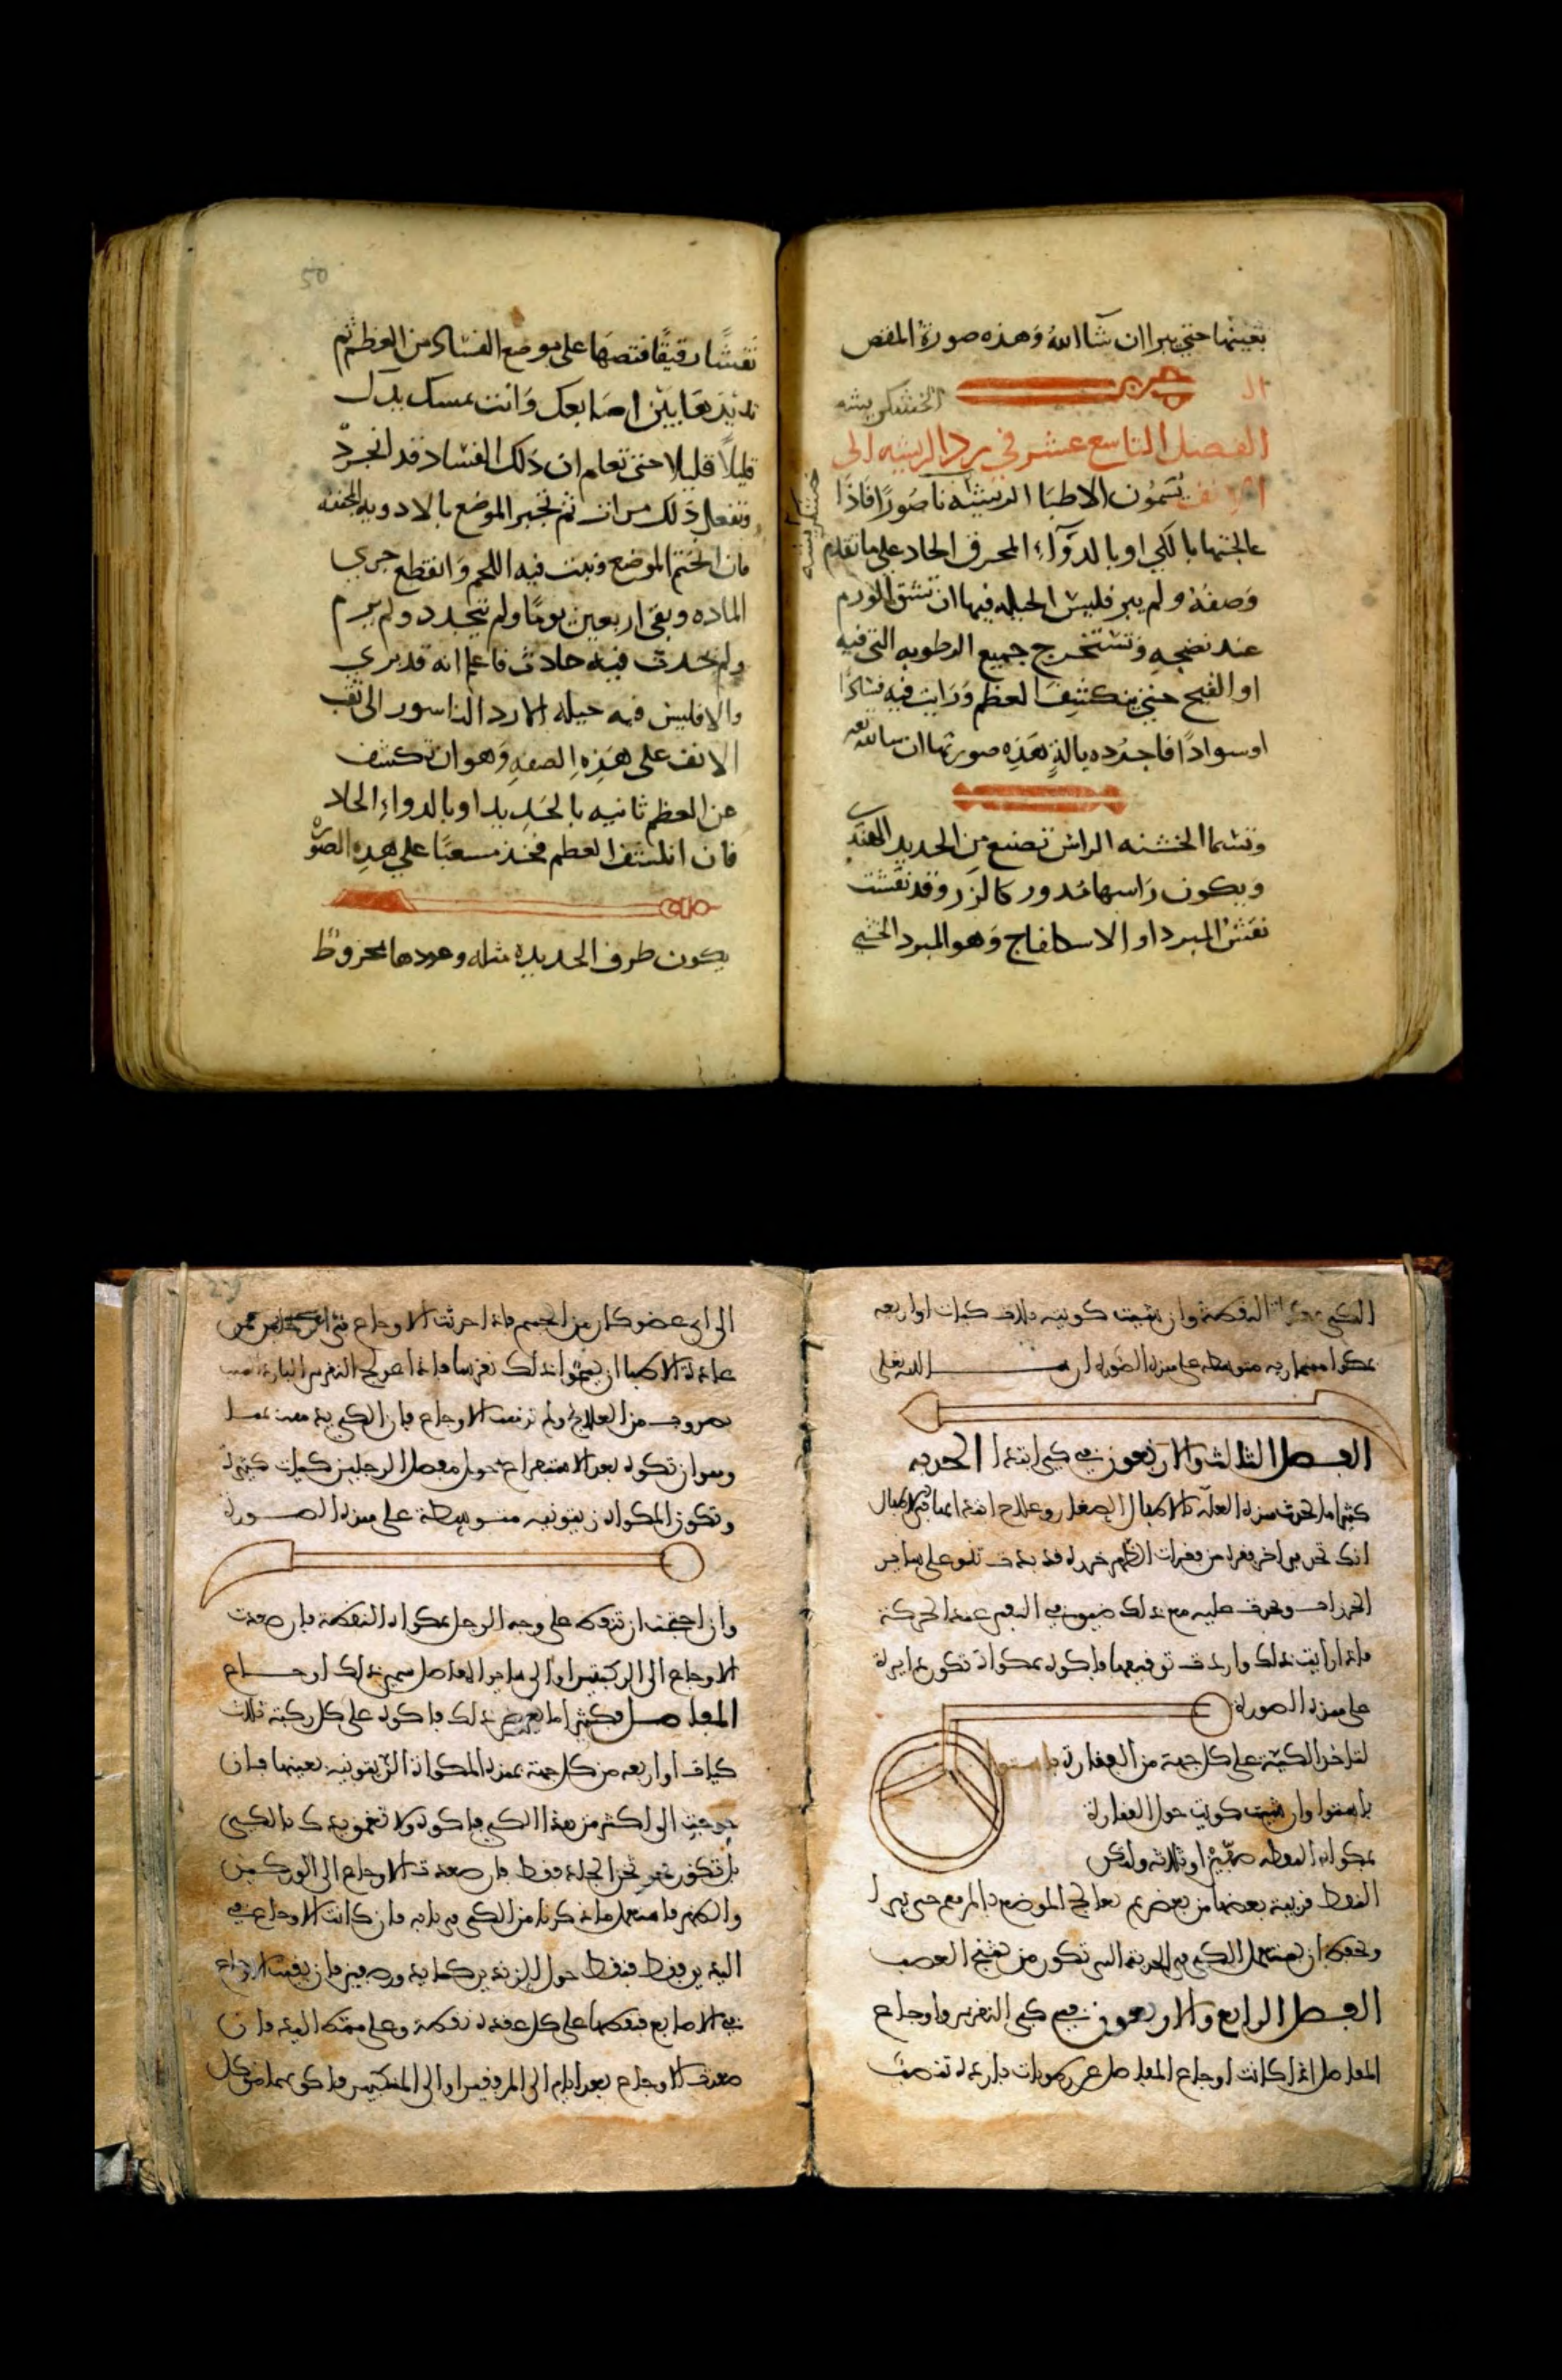 بعينها حتى يبرا ان شآ الله وهذه صورة المقص
الخشكريشه
الفصل التاسع عشر في رد الريشه الى
الانف تسمون الاطبا الريشه ناصورًا فاذا
عالجتها بالكي او بالدوآء المحرق الحاد على ما تقدم
وصفه ولم يبر فليس الحيله فيها ان تشق الورم
عند نضجه وتستخرج جميع الرطوبه التي فيه
او القيح حتى ينكشف العظم ورايت فيه فسادًا
او سوادًا فاجرده بالة هذه صورتها ان
وتسما الخشنه الراس تصنع من الحديد الهندي
ويكون راسها مدور كالزر وقد نقشت
نقش المبرد او الاسكلفاج وهو المبرد الخشبي
50
نقشًا رقيقًا فتضعها على موضع الفساد من العظم ثم
تديرها بين اصابعك وانت تمسك يدك
قليلاً قليلا حتى تعلم ان ذلك الفساد قد انجرد
وتفعل ذلك مرات ثم تجبر الموضع بالادويه المجففه
فان الختم الموضع ونبت فيه اللحم وانقطع جري
الماده وبقى اربعين يومًا ولم يتجدد ولم يرم
ولم يحدث فيه حادث فاعلم انه قد بري
والا فليس فيه حيله الا رد الناسور الى ثقب
الانف على هذه الصفه وهو ان تكشف
عن العظم ثانيه بالحديد او بالدواء الحاد
فان انكشف العظم فخذ مسعبًا على هذه الصوره
يكون طرف الحديده مثله وعودها مخروط
وان شيت كويته ثلاث كيات او اربعه
بمكواه مسماريه متوسطه على هذه الصوره ان الله تعلى
الفصل الثالث والاربعون في كي ابتدا الحدبه
كثيرا ما تحدث هذه العله بالاطفال الصغار وعلامه ابتدائها في الاطفال
انك تجد في اخر فقره من فقرات الظهر قد بدت تعلو على ساير
الفقرات ويحدث عليه مع ذلك ضيق في النفس عند الحركة
فاذا رايت ذلك واردت توقيفها فاكوه بمكواة تكون دايرة
على هذه الصورة
لتاخذ الكيه على كل جهة من الفقارة باستوا
باستوا وان شيت كويت حول الفقارة
بمكواه النقطه صفين او ثلاثه ولتكن
النقط قريبة بعضها من بعض ثم تعالج الموضع بالمرهم حتى يبرا
وتحفظ ان تستعمل الكي في الحدبه التي تكون من تشنج العصب
الفصل الرابع والاربعون في كي النقرس واوجاع
المفاصل اذا كانت اوجاع المفاصل عن رطوبات باردة تنصب
29
الى اي عضو كان من الجسم فاذا احدثت الاوجاع في الرجلين فمن
عادة الاطبا ان يسموا ذلك نقرسا فاذا عولج النقرس البارد
بضروب من العلاج ولم ترتفع الاوجاع فان الكي يذهب بها
وهو ان تكويه بعد الاستفراغ حول مفصل الرجلين كيات كثيرة
وتكون المكواه زيتونيه متوسطة على هذه الصورة
وان احتجت ان تنقط على وجه الرجل بمكواه النقطة فان صعدت
الاوجاع الى الركبتين او الى ساير المفاصل سمي ذلك اوجاع
المفاصل فكثيرا ما يعرض ذلك فاكوه على كل ركبة ثلاث
كيات او اربعه من كل جهة بهذه المكواة الزيتونيه بعينها فان
احتجت الى اكثر من هذا الكي فاكوه ولا تغمز يدك بالكي
بل تكون نحو ثخن الجلد فقط فان صعدت الاوجاع الى الوركين
والظهر فاستعمل ما ذكرنا من الكي في بابه فان كانت الاوجاع في
اليدين فقط فنقط حول الزندين كما يدور صفين فان بقيت الاوجاع
في الاصابع فنقطها على كل عقدة نقطة وعلى مشط اليد فان
صعدت الاوجاع بعد ايام الى المرفقين او الى المنكبين فاكوهما من كل